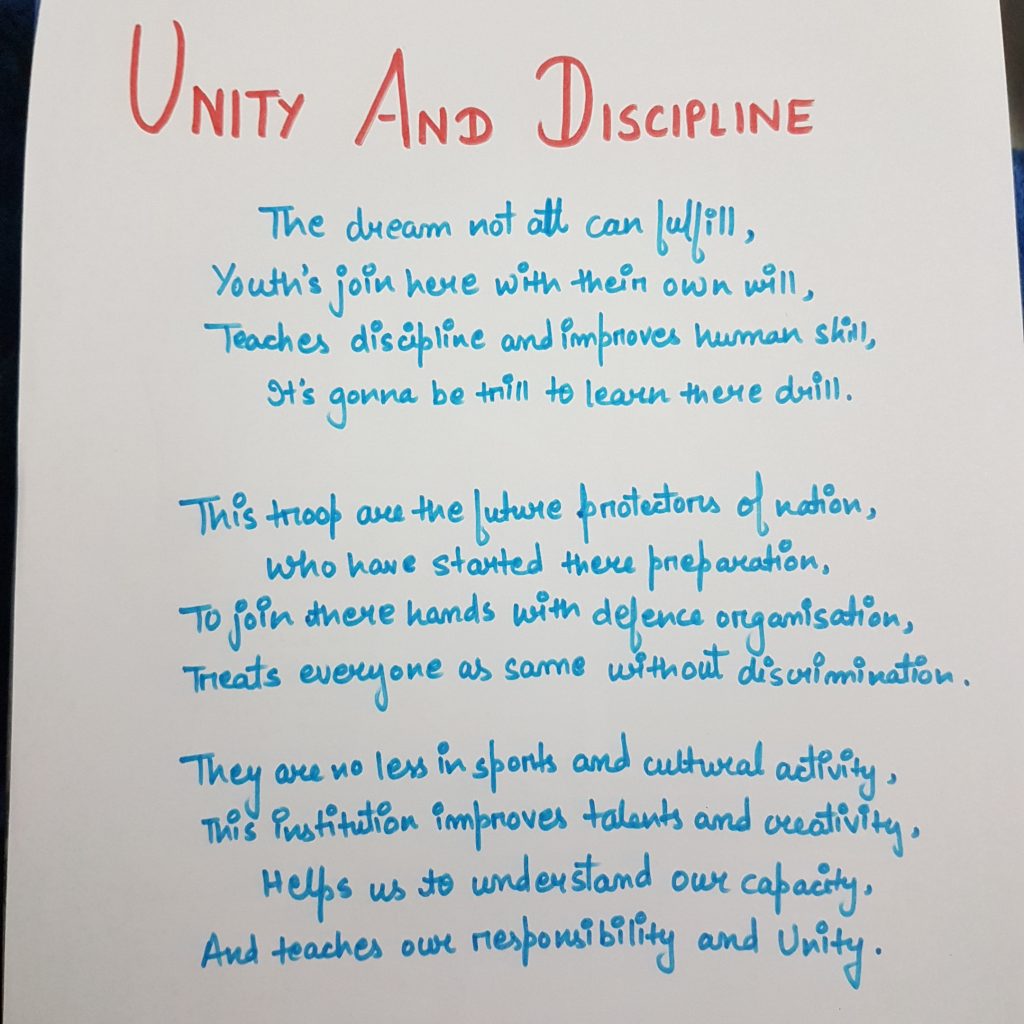 UNITY AND DISCIPLINE
The dream not all can fulfill,
Youth's join here with their own will,
Teaches discipline and improves human skill,
It's gonna be trill to learn there drill.
This troop are the future protectors of nation,
Who have started there preparation,
To join there hands with defence organisation,
Treats everyone as same without discrimination.
They are no less in sports and cultural activity,
This institution improves talents and creativity,
Helps us to understand our capacity,
And teaches our responsibility and Unity.